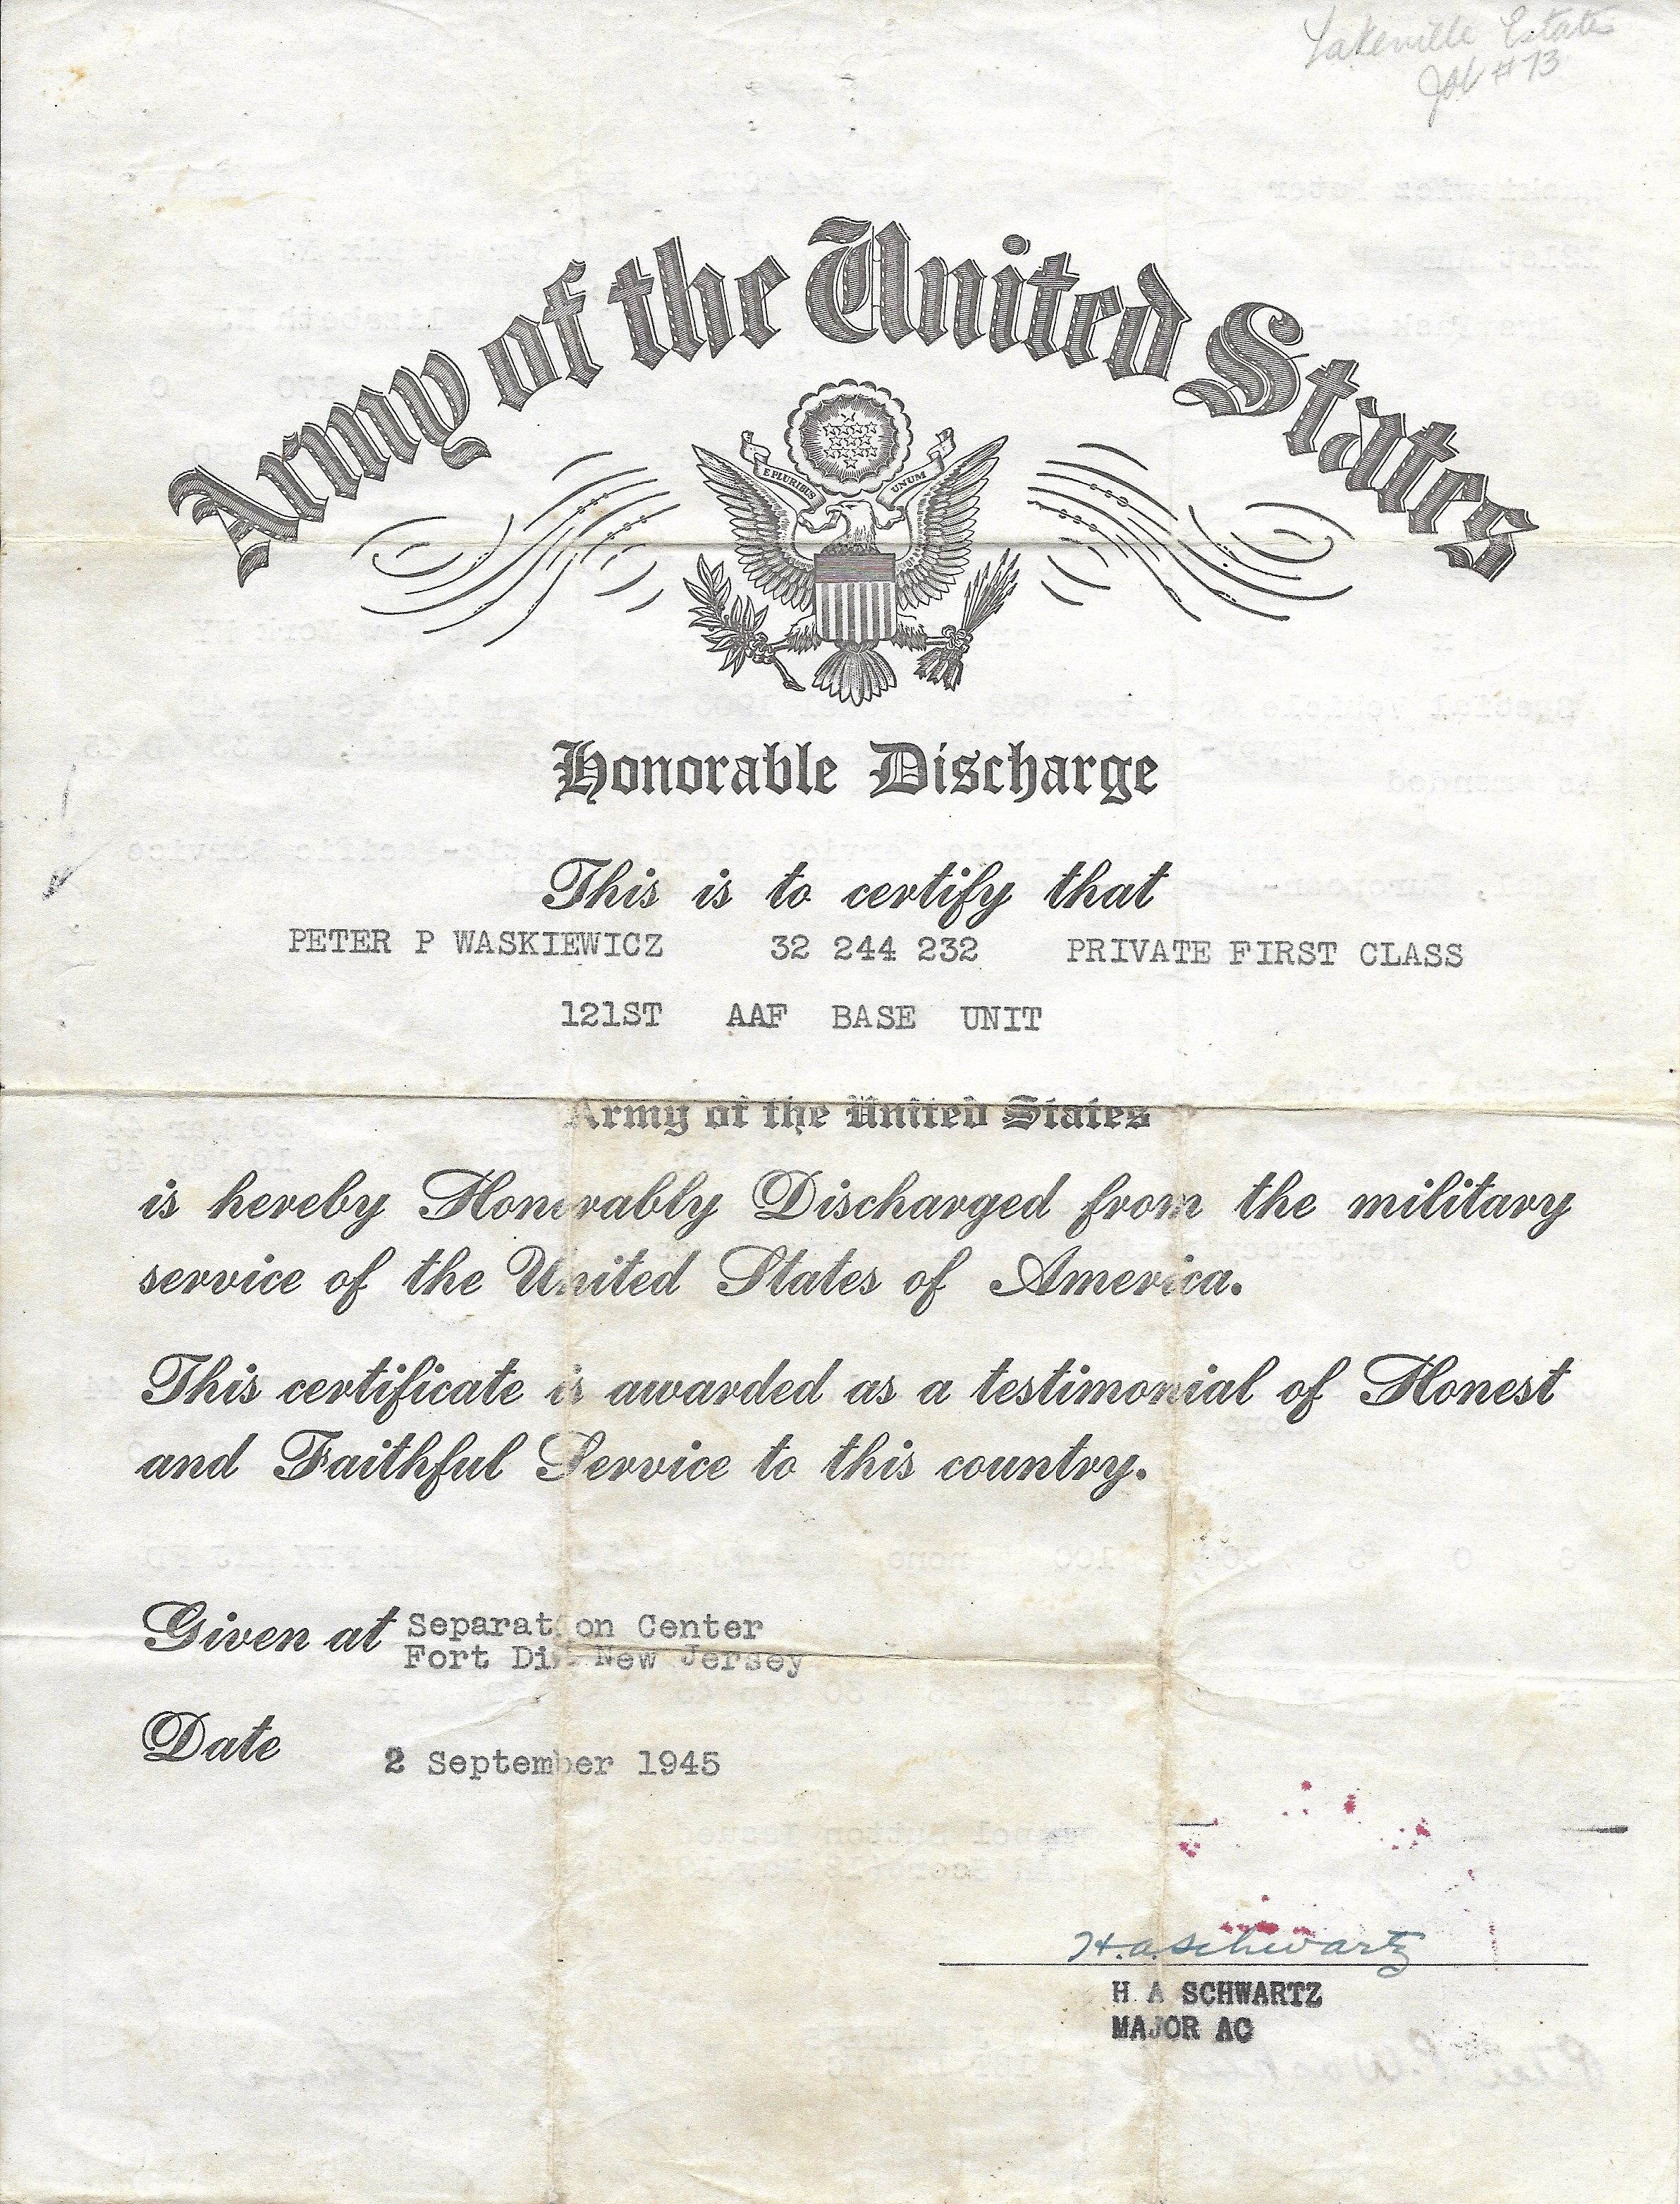 Lakeville Estates
Job # 73
Army of the United States
E PLURIBUS UNUM
Honorable Discharge
This is to certify that
PETER P WASKIEWICZ 32 244 232 PRIVATE FIRST CLASS
121ST AAF BASE UNIT
Army of the United States
is hereby Honorably Discharged from the military
service of the United States of America.
This certificate is awarded as a testimonial of Honest
and Faithful Service to this country.
Given at Separation Center
Fort Dix New Jersey
Date 2 September 1945
H.A. Schwartz
H A SCHWARTZ
MAJOR AC